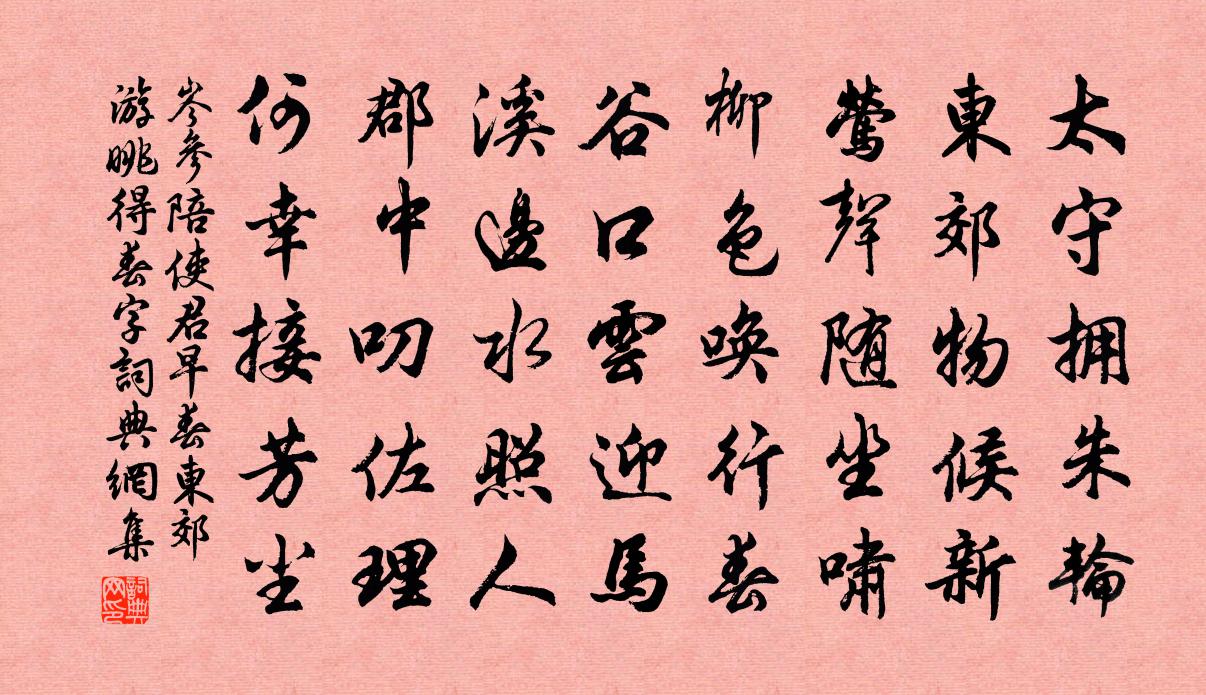 太守拥朱輪
東郊物候新
鶯聲随坐嘯
柳色唤行春
谷口雲迎馬
溪邊水照人
郡中叨佐理
何幸接芳尘
岑參陪使君早春東郊
游眺得春字詞典網集
詞典网印